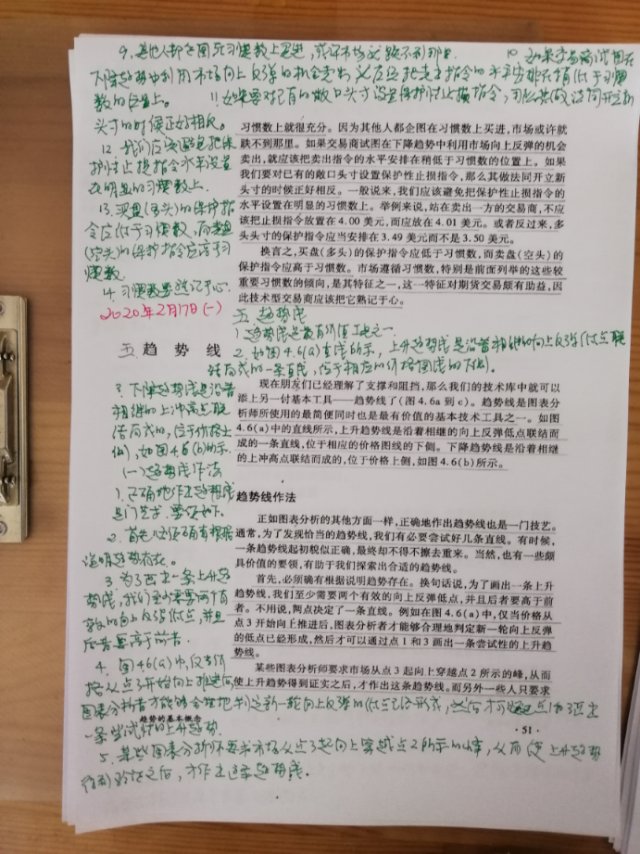 9、其他人都企图在习惯数上买进，或许市场就跌不到那里。
10、如果交易商试图在
下降趋势中利用市场向上反弹的机会卖出，就应该把卖出指令的水平安排在稍低于习惯
数的位置上。 11、如果要对已有的敞口头寸设置保护性止损指令，那么其做法同开立新
头寸的时候正好相反。
12、我们应该避免把保
护性止损指令水平设置
在明显的习惯数上。
13、买盘(多头)的保护指
令应低于习惯数，而卖盘
(空头)的保护指令应高于习
惯数。
14、习惯数要熟记于心。
2020年2月17日(一)
习惯数上就很充分。因为其他人都企图在习惯数上买进，市场或许就
跌不到那里。如果交易商试图在下降趋势中利用市场向上反弹的机会
卖出，就应该把卖出指令的水平安排在稍低于习惯数的位置上。如果
我们要对已有的敞口头寸设置保护性止损指令，那么其做法同开立新
头寸的时候正好相反。一般说来，我们应该避免把保护性止损指令的
水平设置在明显的习惯数上。举例来说，站在卖出一方的交易商，不应
该把止损指令放置在 4.00 美元，而应放在 4.01 美元。或者反过来，多
头头寸的保护指令应当安排在 3.49 美元而不是 3.50 美元。
换言之，买盘(多头)的保护指令应低于习惯数，而卖盘(空头)的
保护指令应高于习惯数。市场遵循习惯数，特别是前面列举的这些较
重要习惯数的倾向，是其特征之一，这一特征对期货交易颇有助益，因
此技术型交易商应该把它熟记于心。
五、趋势线
1、趋势线是最有价值工具之一。
2、如图4.6(a)直线所示，上升趋势线是沿着相继的向上反弹低点联
结而成的一条直线，位于相应的价格图线的下侧。
五 趋势线
3、下降趋势线是沿着
相继的上冲高点联
结而成的，位于价格上
侧，如图4.6(b)所示。
(一)趋势线作法
1、正确地作出趋势线
是门艺术，要领如下。
2、首先，必须确有根据
说明趋势存在。
3、为了画出一条上升趋
势线，我们至少需要两个有
效的向上反弹低点，并且
后者要高于前者。
4、图4.6(a)中，仅当价
格从点3开始向上推进后，
图表分析者才能够合理地判定新一轮向上反弹的低点已经形成，然后才可通过点1和3画出
一条尝试性的上升趋势。
5、某些图表分析师要求市场从点3起向上穿越点2所示的峰，从而使上升趋势
得到验证之后，才作出这条趋势线。
现在朋友们已经理解了支撑和阻挡，那么我们的技术库中就可以
添上另一付基本工具——趋势线了(图 4.6a 到 c)。趋势线是图表分
析师所使用的最简便同时也是最有价值的基本技术工具之一。如图
4.6(a)中的直线所示，上升趋势线是沿着相继的向上反弹低点联结而
成的一条直线，位于相应的价格图线的下侧。下降趋势线是沿着相继
的上冲高点联结而成的，位于价格上侧，如图 4.6(b)所示。
趋势线作法
正如图表分析的其他方面一样，正确地作出趋势线也是一门技艺。
通常，为了发现恰当的趋势线，我们有必要尝试好几条直线。有时候，
一条趋势线起初貌似正确，最终却不得不擦去重来。当然，也有一些颇
具价值的要领，有助于我们探索出合适的趋势线。
首先，必须确有根据说明趋势存在。换句话说，为了画出一条上升
趋势线，我们至少需要两个有效的向上反弹低点，并且后者要高于前
者。不用说，两点决定了一条直线。例如在图 4.6(a)中，仅当价格从
点 3 开始向上推进后，图表分析者才能够合理地判定新一轮向上反弹
的低点已经形成，然后才可以通过点 1 和 3 画出一条尝试性的上升趋
势线。
某些图表分析师要求市场从点 3 起向上穿越点 2 所示的峰，从而
使上升趋势得到证实之后，才作出这条趋势线。而另外一些人只要求
趋势的基本概念
· 51 ·